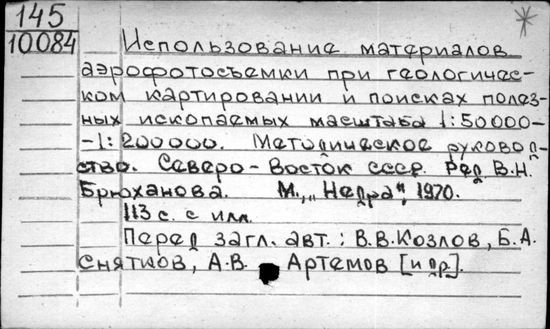 145
10084
Использование материалов
аэрофотосъемки при геологичес-
ком картировании и поисках полез-
ных ископаемых масштаба 1:50000-
-1:200000. Методическое руковод-
ство. Северо-Восток СССР. Ред В.Н.
Брюханова. М., „Недра", 1970.
113 с. с илл.
Перед загл. авт.: В.В.Козлов, Б.А.
Снятков, А.В. Артемов [и др].